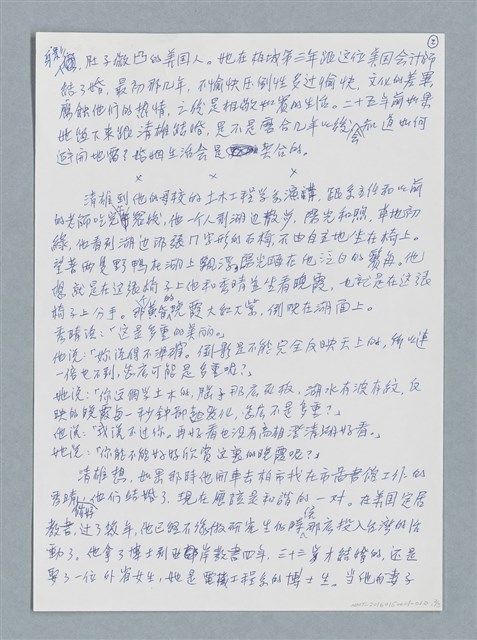 ②
身影，肚子微凸的美国人。她在柏城第三年跟这位美国会计师
结了婚，最初那几年，不愉快压倒性多过愉快，文化的差異
腐蝕他们的热情，之後是相敬如賓的生活。二十五年前如果
她留下来跟清雄结婚，是不是磨合几年以後会知道如何
避開地雷？婚姻生活会是契合的。
× × ×
清雄到他的母校的土木工程学系演講，跟系主任和以前
的老師吃完餐後，他一个人到湖边散步，陽光和煦，草地初
綠，他看到湖边那張ㄇ字形的石椅，不由自主地坐在椅上。
望著两隻野鴨在湖上飄浮，陽光晒在他泛白的鬢角。他
想就是在这張椅子上他和秀晴並坐看晚霞，也就是在这張
椅子上分手。那黄昏的晚霞大红大紫，倒映在湖面上。
秀晴说：「这是多重的美丽。」
他说：「妳说得不準確。倒影是不能完全反映天上的，所以連
一倍也不到，怎麼可能是多重呢？」
她说：「你这個学土木的，腦子那麼死板，湖水有波有紋，反
映的晚霞每一秒鐘都起变化，怎麼不是多重？」
他说：「我说不过你，再好看也没有高雄澄清湖好看。」
她说：「你能不能好好欣賞这裏的晚霞呢？」
清雄想，如果那時他開車去柏市找在市圖書館工作的
秀晴，他们结婚了，現在應該是和諧的一对。在美国定居
教書，过了数年，他已經不像做研究生的時候那麼投入台湾的活
動了。他拿了博士到西岸教書四年，三十三岁才结婚的，还是
娶了一位外省女生，她是電機工程系的博士生。当他的妻子